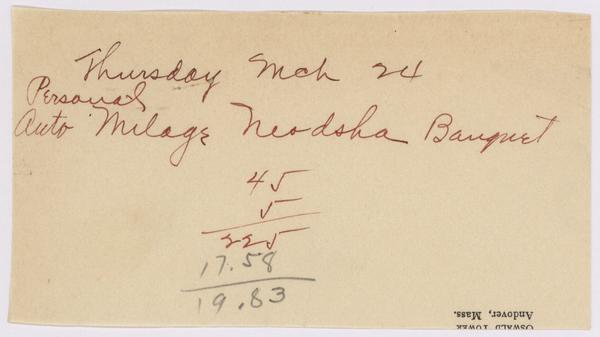 Thursday Mch 24
Personal
Auto Milage Neodsha Banquet
45
5
225
17.58
19.83
OSWALD TOWER
Andover, Mass.